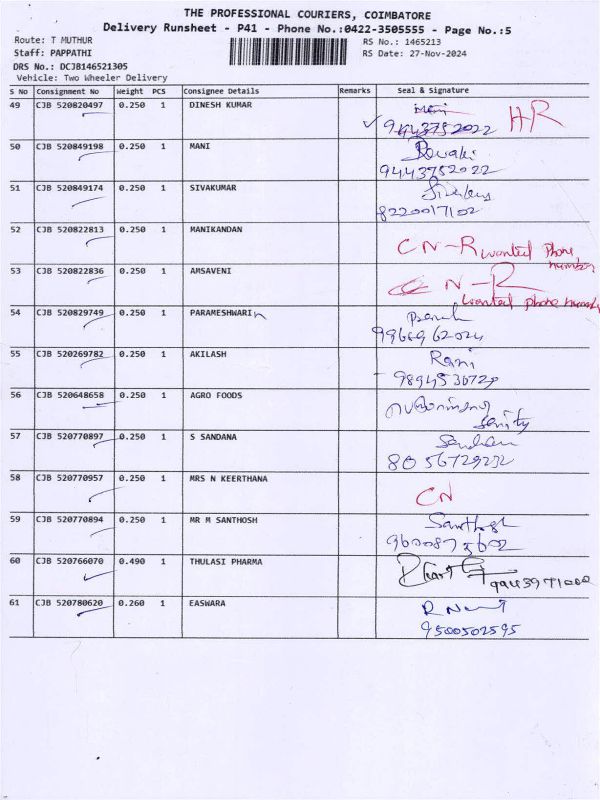 THE PROFESSIONAL COURIERS, COIMBATORE
Delivery Runsheet - P41 - Phone No.:0422-3505555 - Page No.:5
Route: T MUTHUR RS No.: 1465213
Staff: PAPPATHI RS Date: 27-Nov-2024
DRS No.: DCJB146521305
Vehicle: Two Wheeler Delivery
S No Consignment No Weight PCS Consignee Details Remarks Seal & Signature
49 CJB 520820497 0.250 1 DINESH KUMAR Mani HR
9443752022
50 CJB 520849198 0.250 1 MANI
9443752022
51 CJB 520849174 0.250 1 SIVAKUMAR
8220017102
52 CJB 520822813 0.250 1 MANIKANDAN CN-R wanted Phone
number
53 CJB 520822836 0.250 1 AMSAVENI CN-R
wanted phone number
54 CJB 520829749 0.250 1 PARAMESHWARI
55 CJB 520269782 0.250 1 AKILASH Rani
56 CJB 520648658 0.250 1 AGRO FOODS
57 CJB 520770897 0.250 1 S SANDANA
8056729232
58 CJB 520770957 0.250 1 MRS N KEERTHANA CN
59 CJB 520770894 0.250 1 MR M SANTHOSH Santhosh
60 CJB 520766070 0.490 1 THULASI PHARMA
61 CJB 520780620 0.260 1 EASWARA
9500502595